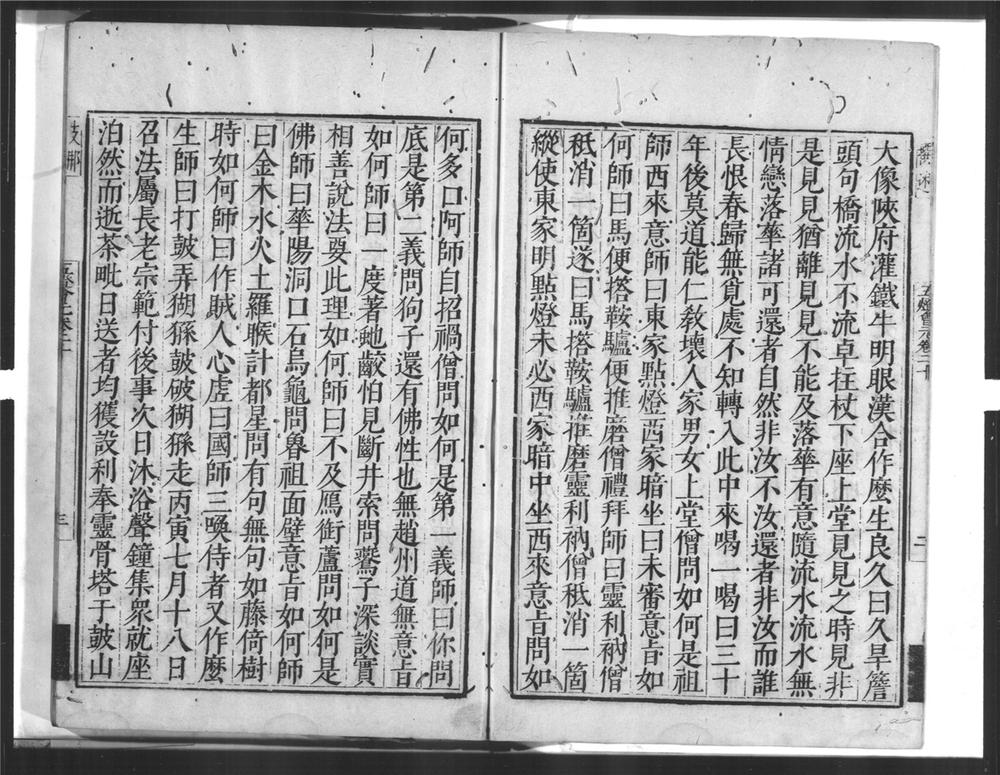 大像陝府灌鐵牛明眼漢合作麽生良久曰久旱簷
頭句橋流水不流卓拄杖下座上堂見見之時見非
是見見猶離見見不能及落華有意隨流水流水無
情戀落華諸可還者自然非汝不汝還者非汝而誰
長恨春歸無覓處不知轉入此中來喝一喝曰三十
年後莫道能仁教壞人家男女上堂僧問如何是祖
師西來意師曰東家點燈西家暗坐曰未審意旨如
何師曰馬便搭鞍驢便推磨僧禮拜師曰靈利衲僧
秪消一箇遂曰馬搭鞍驢推磨靈利衲僧秪消一箇
縱使東家明點燈未必西家暗中坐西來意旨問如
五燈會元卷二十
二
何多口阿師自招禍僧問如何是第一義師曰你問
底是第二義問狗子還有佛性也無趙州道無意旨
如何師曰一度著虵齩怕見斷井索問鶖子深談實
相善說法要此理如何師曰不及鴈銜蘆問如何是
佛師曰華陽洞口石烏龜問魯祖面壁意旨如何師
曰金木水火土羅睺計都星問有句無句如藤倚樹
時如何師曰作賊人心虛曰國師三喚侍者又作麽
生師曰打皷弄猢猻皷破猢猻走丙寅七月十八日
召法屬長老宗範付後事次日沐浴聲鐘集衆就座
泊然而逝茶毗日送者均獲設利奉靈骨塔于皷山
三